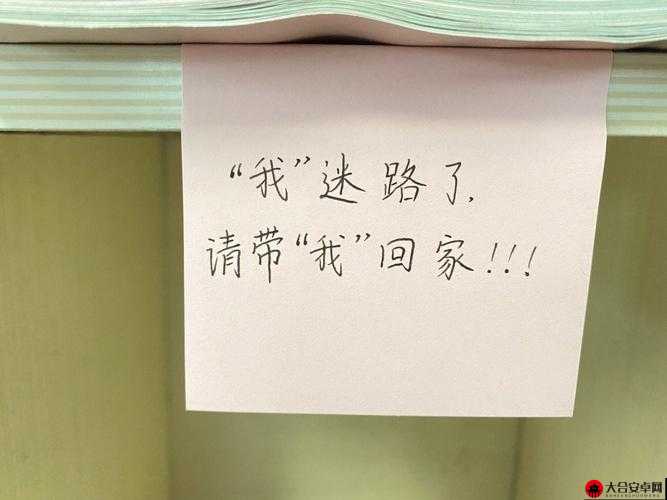 “我”迷路了,
请带“我”回家!!!
大合安卓网